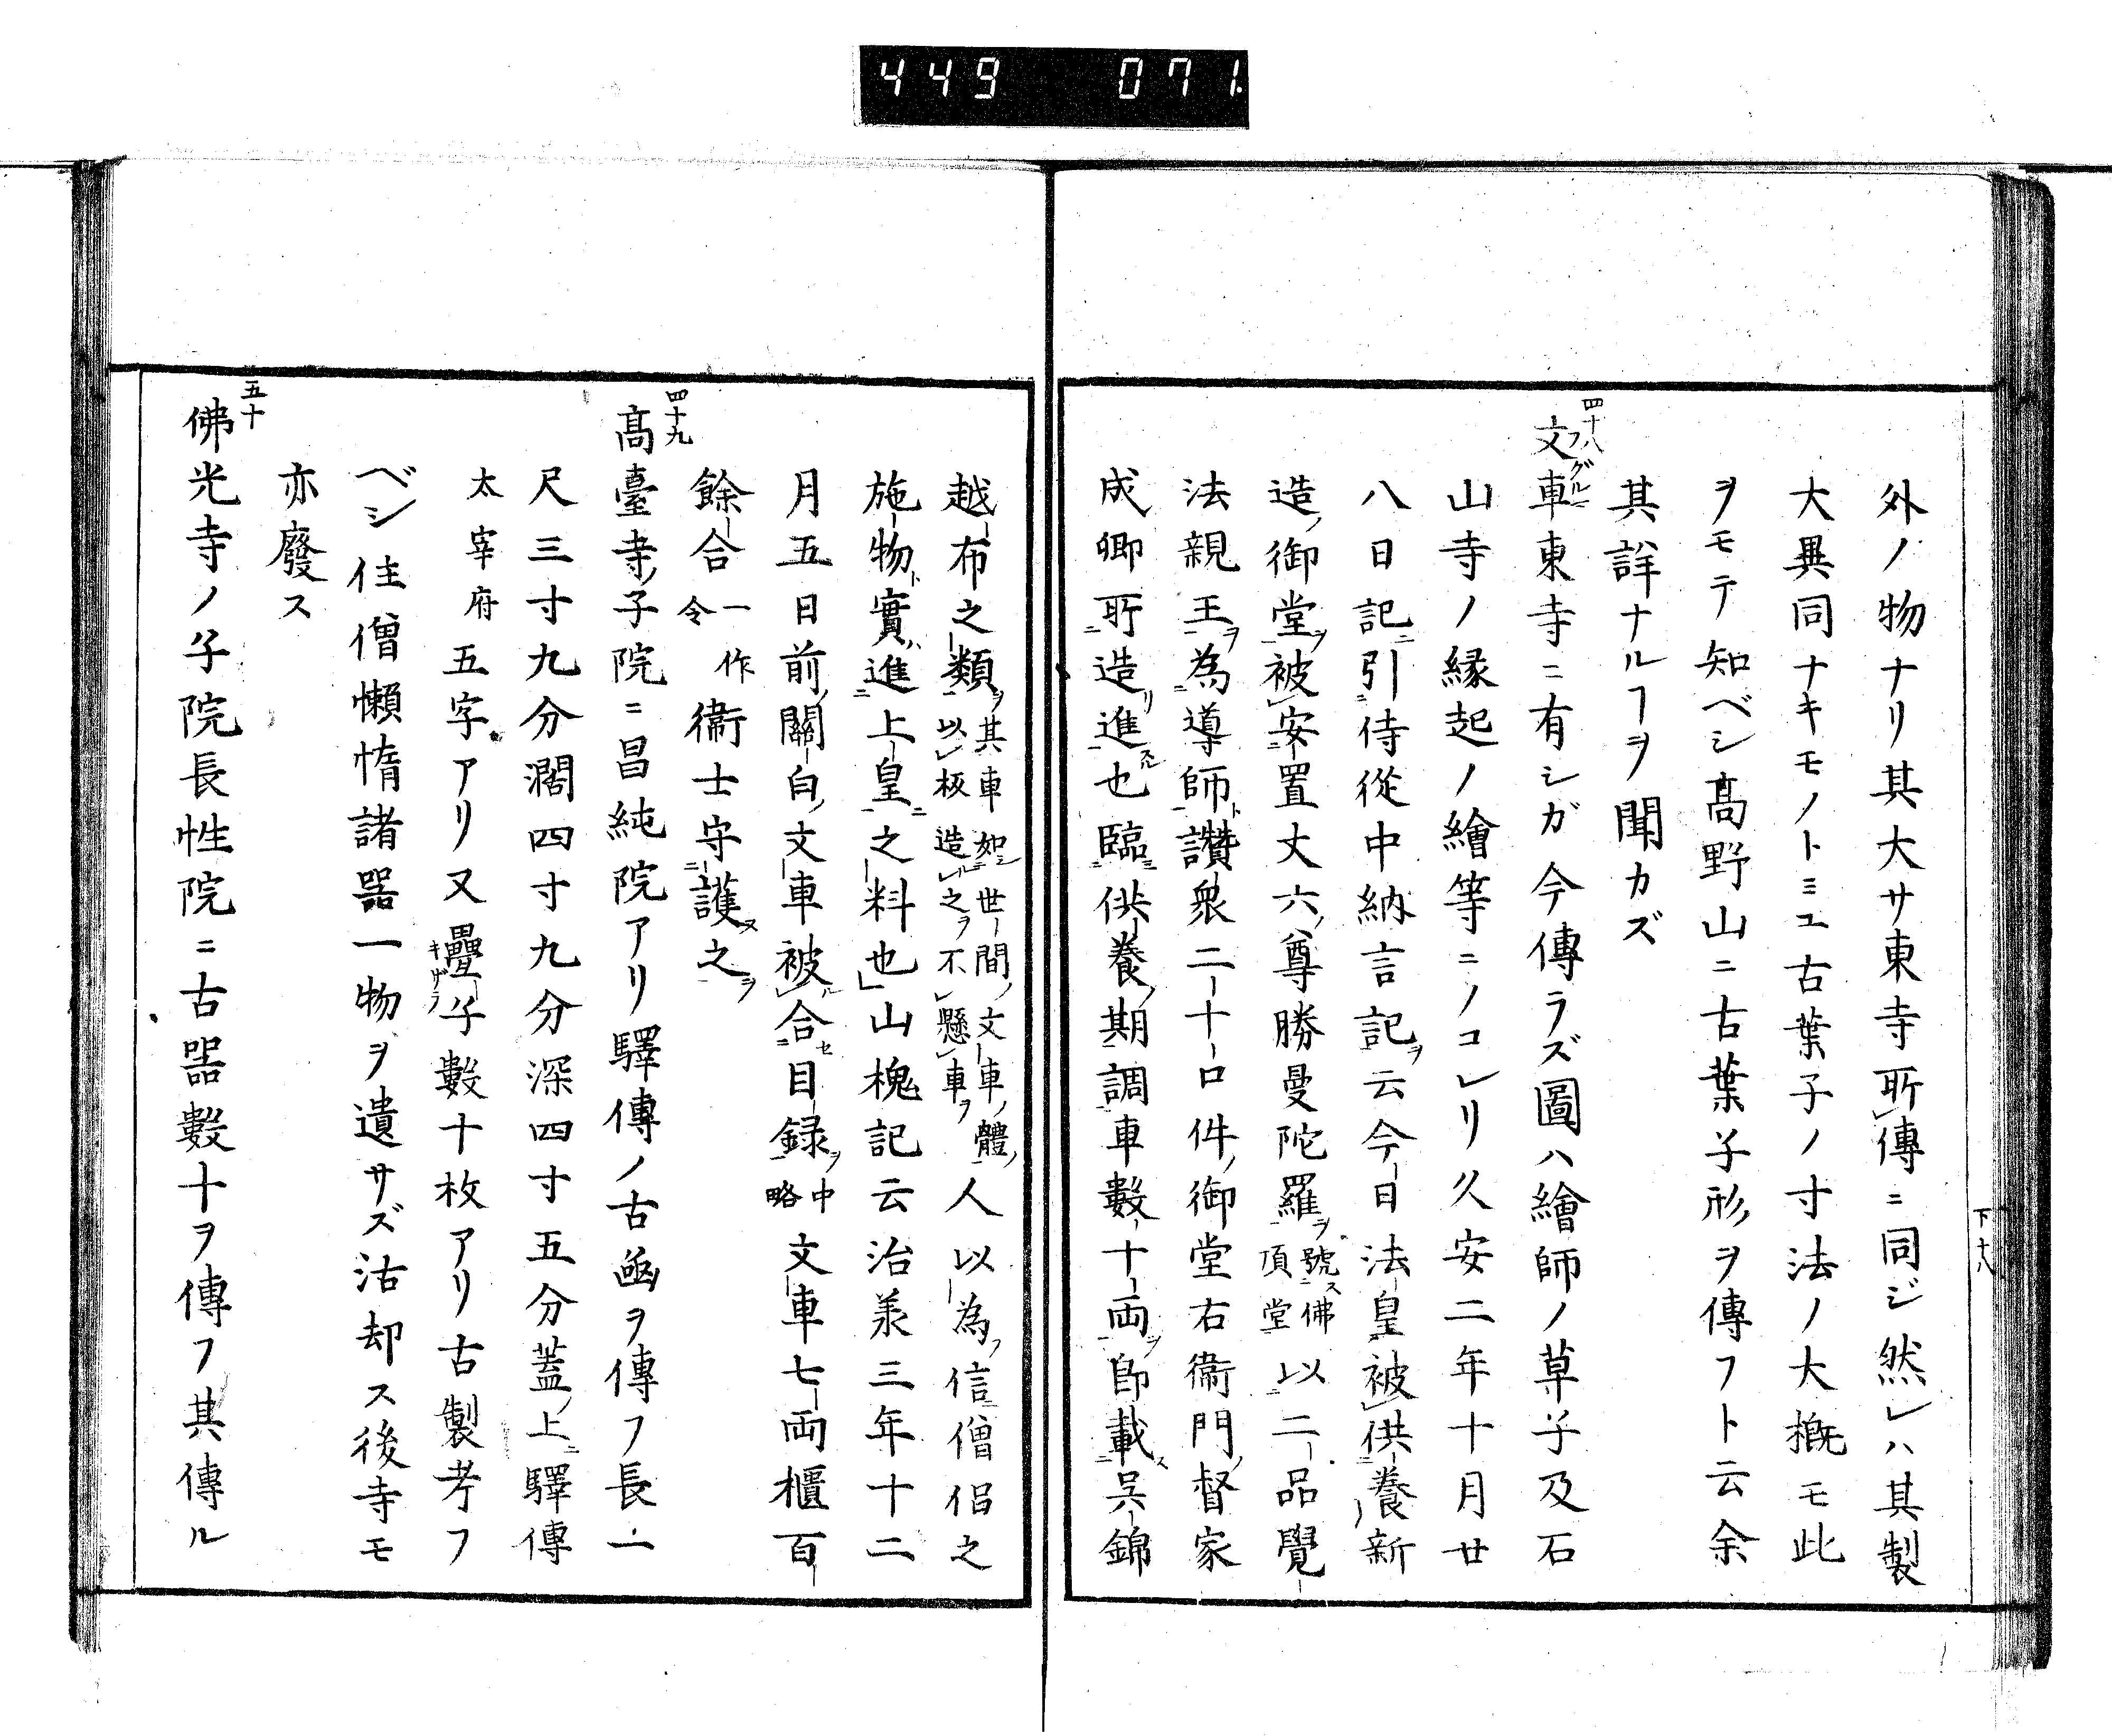 449 071
下十八
外ノ物ナリ其大サ東寺所傳ニ同ジ然レハ其製
大異同ナキモノトミユ古葉子ノ寸法ノ大概モ此
ヲモテ知ベシ高野山ニ古葉子形ヲ傳フト云余
其詳ナルヿヲ聞カズ
四十八
文車東寺ニ有シガ今傳ラズ圖ハ繪師ノ草子及石
フグルマ
山寺ノ縁起ノ繪等ニノコレリ久安二年十月廿
八日記ニ引侍從中納言記ヲ云今日法皇被供養新
造ノ御堂ヲ被安置丈六ノ尊勝曼陀羅ヲ號ス佛頂堂以二品覺
法親王ヲ為導師ト讃衆二十口件ノ御堂右衞門ノ督家
成卿所造リ進スル也臨供養ノ期調車數十両ヲ即載ス呉錦
越布之類ヲ其車如世間ノ文車ノ體ノ以板造之ヲ不懸車ヲ人以為ラク信僧侶之
施物ト實ハ進上皇之料也山槐記云治承三年十二
月五日前ノ關白ノ文車被合セ目録ヲ中略文車七両櫃百
餘合一作令衞士守護ス之ヲ
四十九
高臺寺ノ子院ニ昌純院アリ驛傳ノ古凾ヲ傳フ長一
尺三寸九分濶四寸九分深四寸五分蓋ノ上ニ驛傳
太宰府五字アリ又疊子數十枚アリ古製考フ
キザラ
ベシ住僧懶惰諸器一物ヲ遺サズ沽却ス後寺モ
亦廢ス
五十
佛光寺ノ子院長性院ニ古器數十ヲ傳フ其傳ル